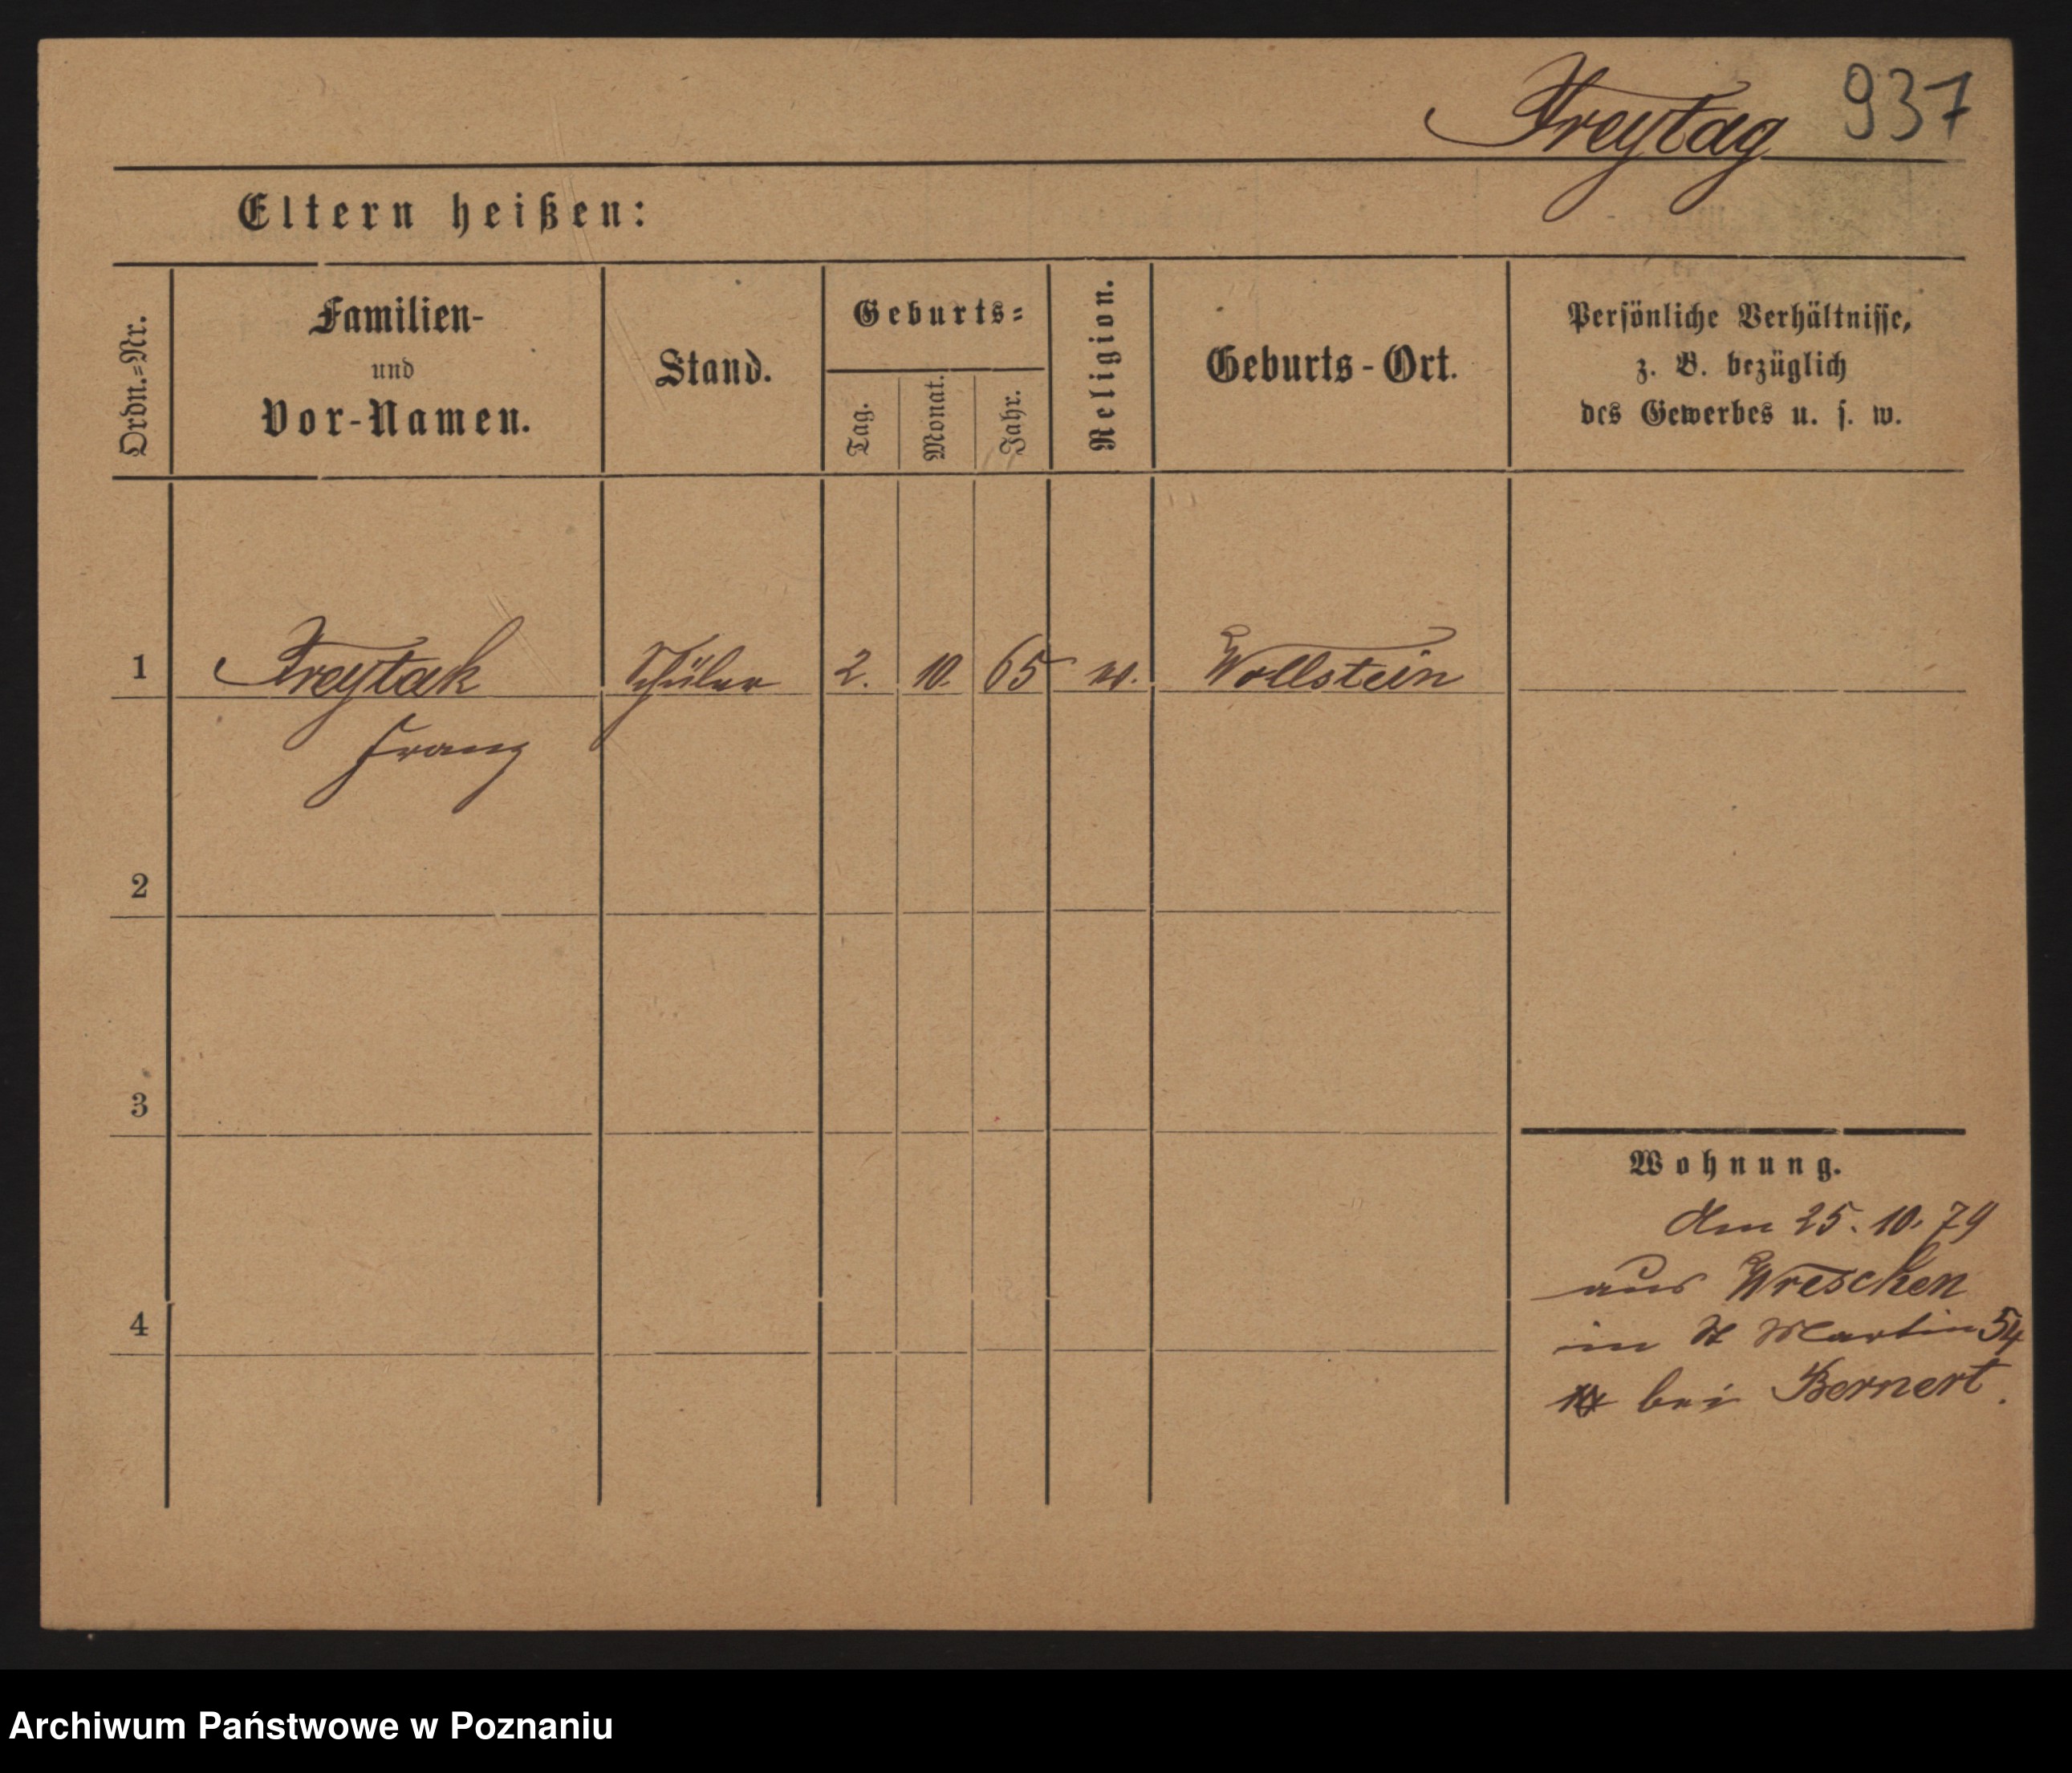 Freytag 937
Eltern heißen:
Ordn.=Nr.
Familien-
und
Vor-Namen.
Stand.
Geburts=
Tag.
Monat.
Jahr.
Religion.
Geburts-Ort.
Persönliche Verhältnisse,
z. B. bezüglich
des Gewerbes u. s. w.
1 Freytak Schüler 2. 10. 65 Wollstein
Franz
2
3
4
Wohnung.
den 25. 10. 79
aus Wreschen
in St Martin 54
bei Bernert.
Archiwum Państwowe w Poznaniu